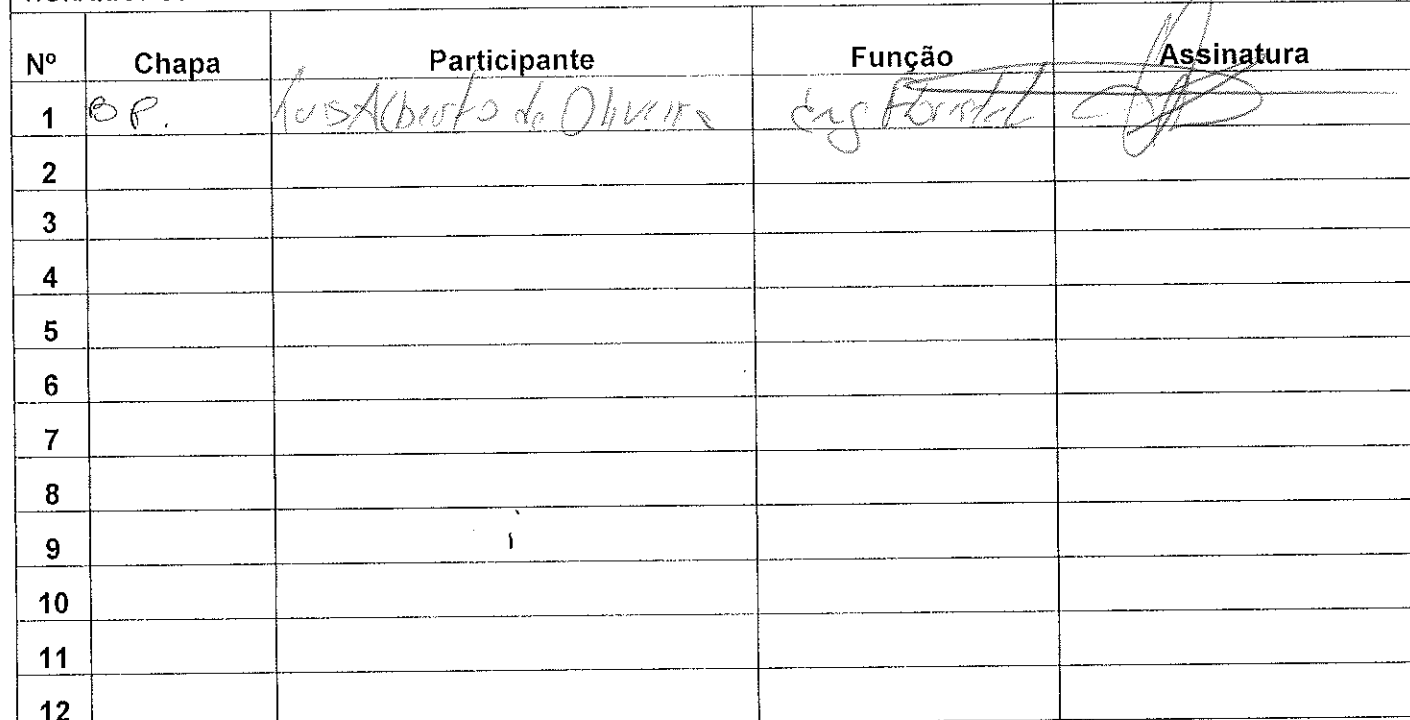 Nº Chapa Participante Função Assinatura
1 B P. Luis Alberto de Oliveira Eng Florestal
2
3
4
5
6
7
8
9
10
11
12